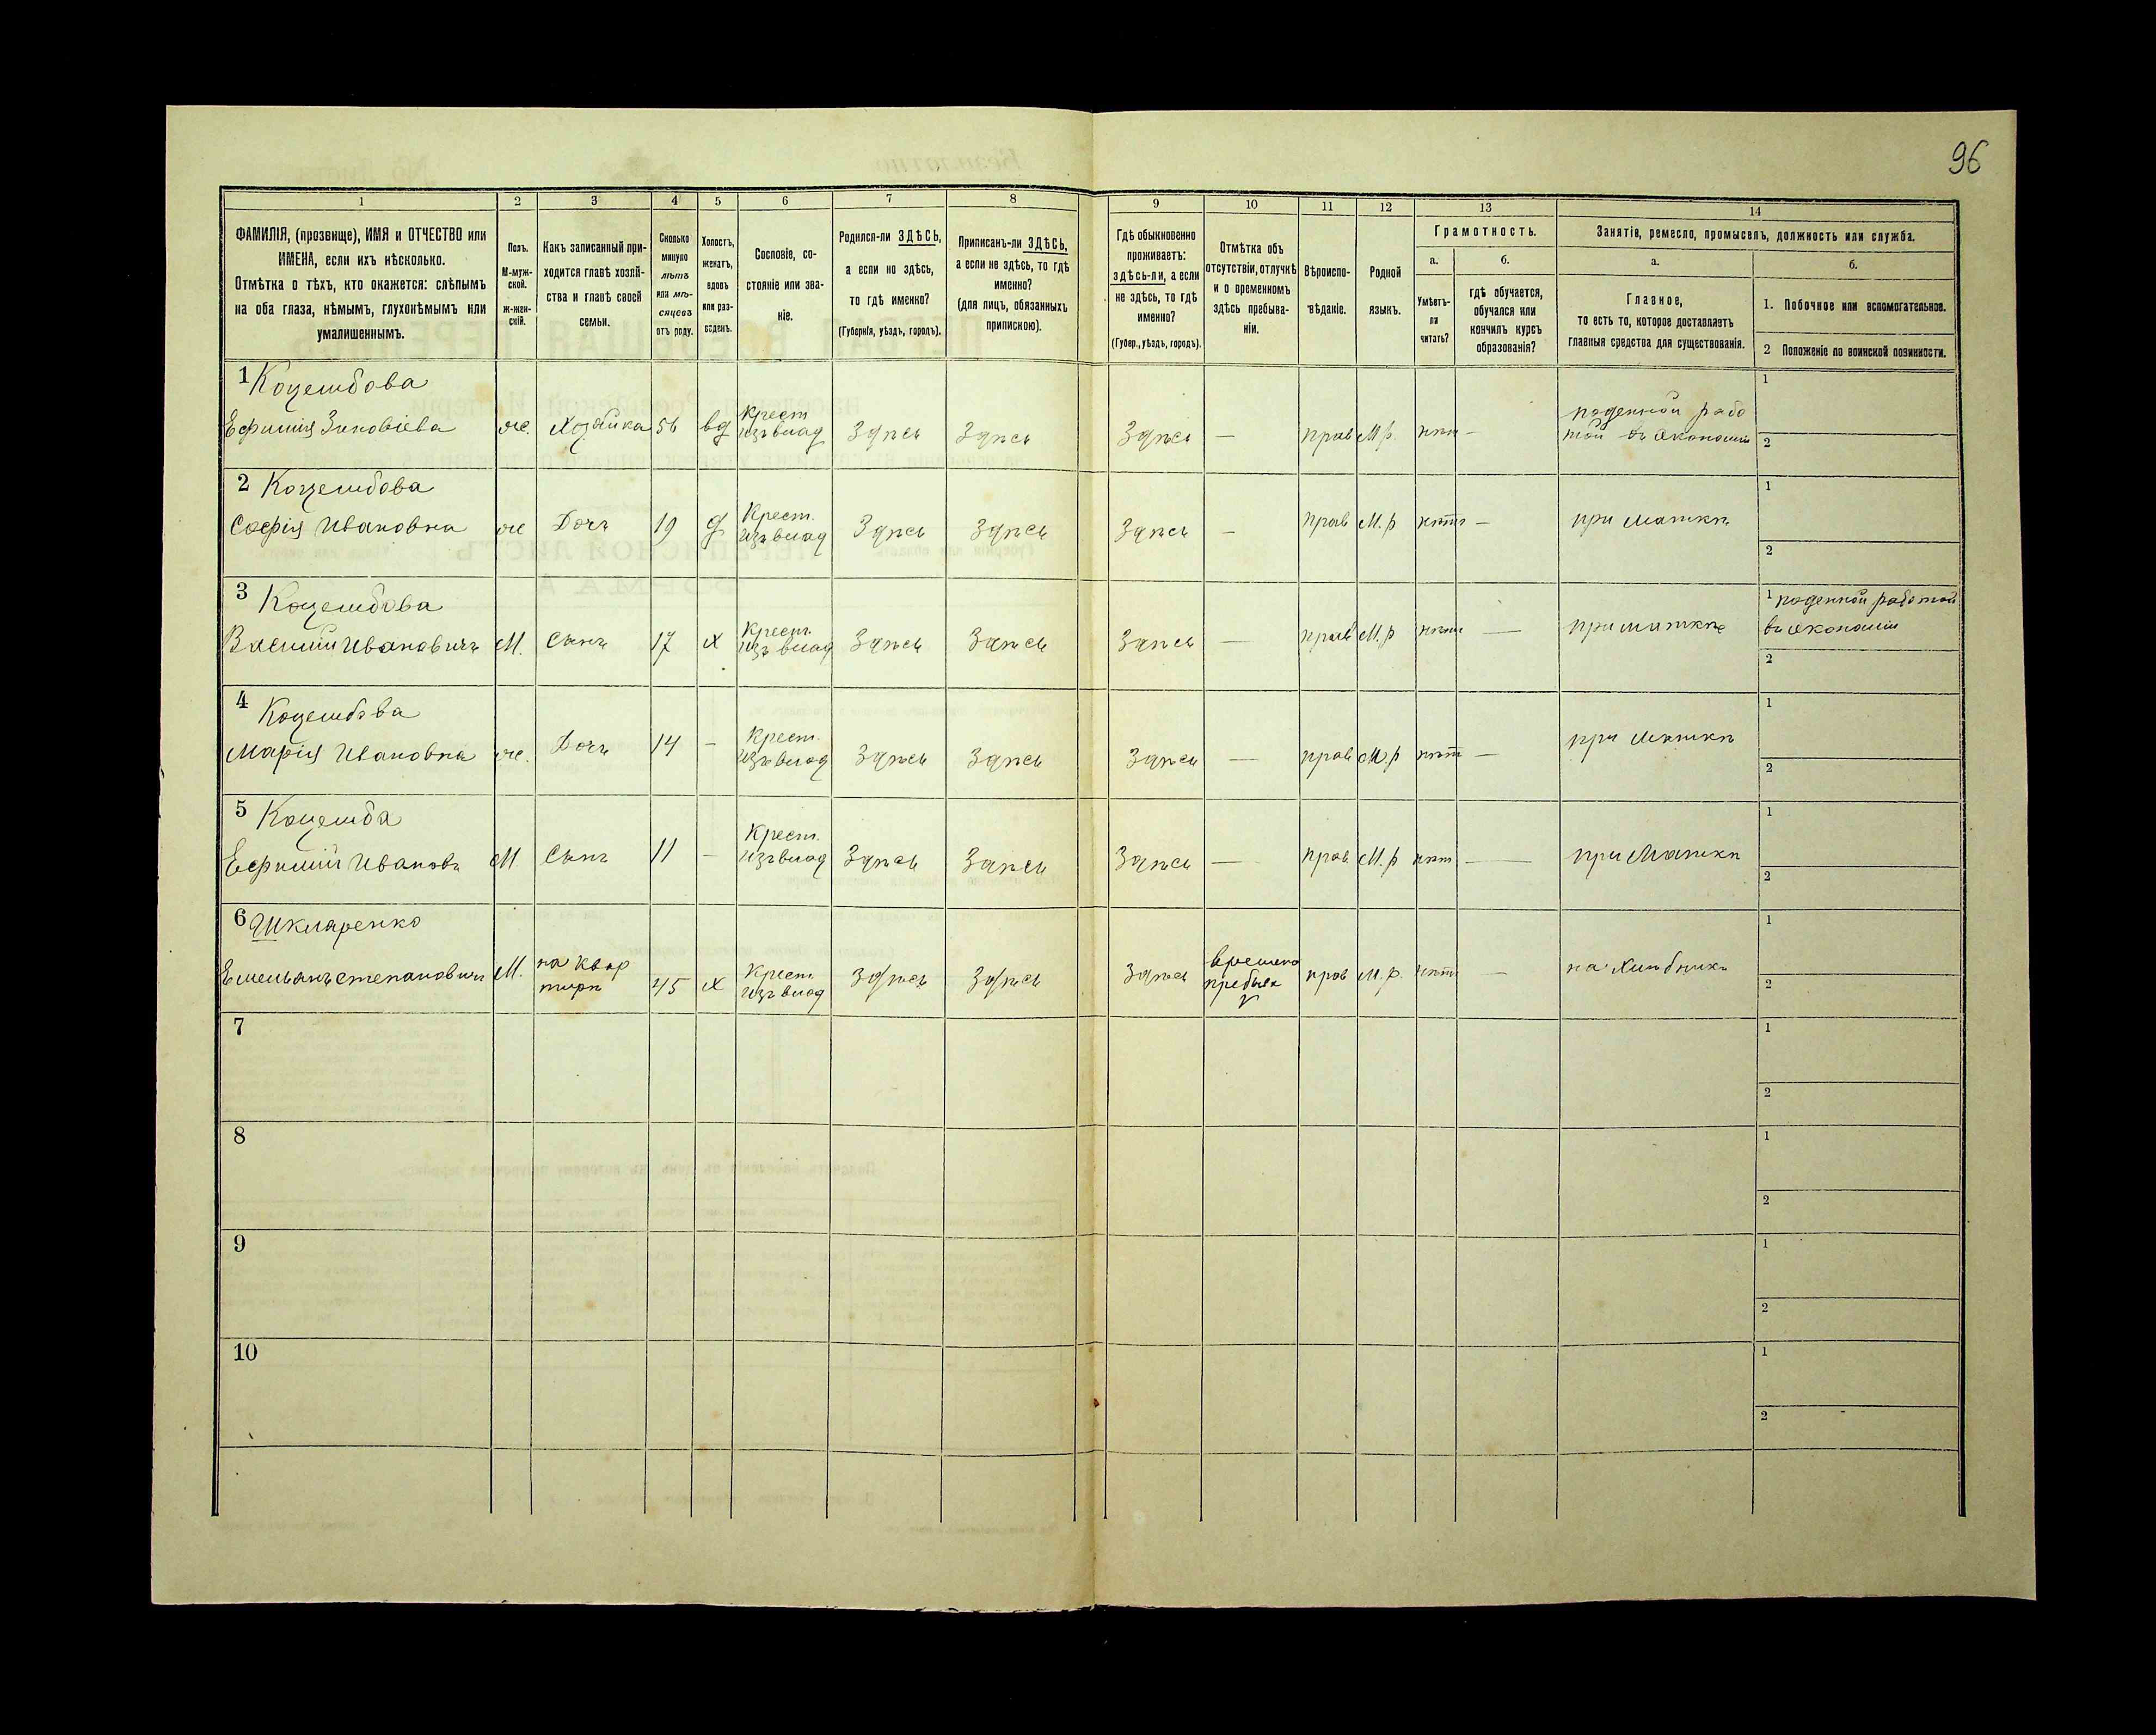 96
1 2 3 4 5 6 7 8 9 10 11 12 13 14
ФАМИЛІЯ, (прозвище), ИМЯ и ОТЧЕСТВО или
ИМЕНА, если ихъ нѣсколько.
Отмѣтка о тѣхъ, кто окажется: слѣпымъ
на оба глаза, нѣмымъ, глухонѣмымъ или
умалишеннымъ.
Полъ.
М-муж-
ской.
Ж-жен-
скій.
Какъ записанный при-
ходится главѣ хозяй-
ства и главѣ своей
семьи.
Сколько
минуло
лѣтъ
или мѣ-
сяцевъ
отъ роду.
Холостъ,
женатъ,
вдовъ
или раз-
веденъ.
Сословіе, со-
стояніе или зва-
ніе.
Родился-ли ЗДѢСЬ,
а если не здѣсь,
то гдѣ именно?
(Губернія, уѣздъ, городъ).
Приписанъ-ли ЗДѢСЬ,
а если не здѣсь, то гдѣ
именно?
(для лицъ, обязанныхъ
припискою).
Гдѣ обыкновенно
проживаетъ:
здѣсь-ли, а если
не здѣсь, то гдѣ
именно?
(Губер., уѣздъ, городъ).
Отмѣтка объ
отсутствіи, отлучкѣ
и о временномъ
здѣсь пребыва-
ніи.
Вѣроиспо-
вѣданіе.
Родной
языкъ.
Грамотность.
а.
Умѣетъ-
ли
читать?
б.
гдѣ обучается,
обучался или
кончилъ курсъ
образованія?
Занятіе, ремесло, промыселъ, должность или служба.
а.
Главное,
то есть то, которое доставляетъ
главныя средства для существованія.
б.
1. Побочное или вспомогательное.
2 Положеніе по воинской повинности.
1 Коцембова
Ефимія Зиновіева ж. Хозяйка 56 вд Крест изъ влад Здѣсь Здѣсь Здѣсь — прав М.р. нѣт — поденной рабо
той въ экономіи
1
2
2 Коцембова
Софія Ивановна ж Дочь 19 д Крест. изъ влад Здѣсь Здѣсь Здѣсь — прав М.р нѣт — при маткѣ
1
2
3 Коцембова
Василий Ивановичъ М. Сынъ 17 х Крест. изъ влад Здѣсь Здѣсь Здѣсь — прав М.р нѣт — при маткѣ
1 поденной работой
въ экономіи
2
4 Коцембова
Марія Ивановна ж. Дочь 14 — Крест. изъ влад Здѣсь Здѣсь Здѣсь — прав М.р нѣт — при маткѣ
1
2
5 Коцемба
Ефимий Ивановъ М. Сынъ 11 — Крест. изъ влад Здѣсь Здѣсь Здѣсь — прав М.р нѣт — при маткѣ
1
2
6 Шкляренко
Емельянъ Степановичъ М. на квар
тирѣ 45 х Крест. изъ влад Здѣсь Здѣсь Здѣсь времено
пребыв прав М.р. нѣт —
1
2
7
1
2
8
1
2
9
1
2
10
1
2